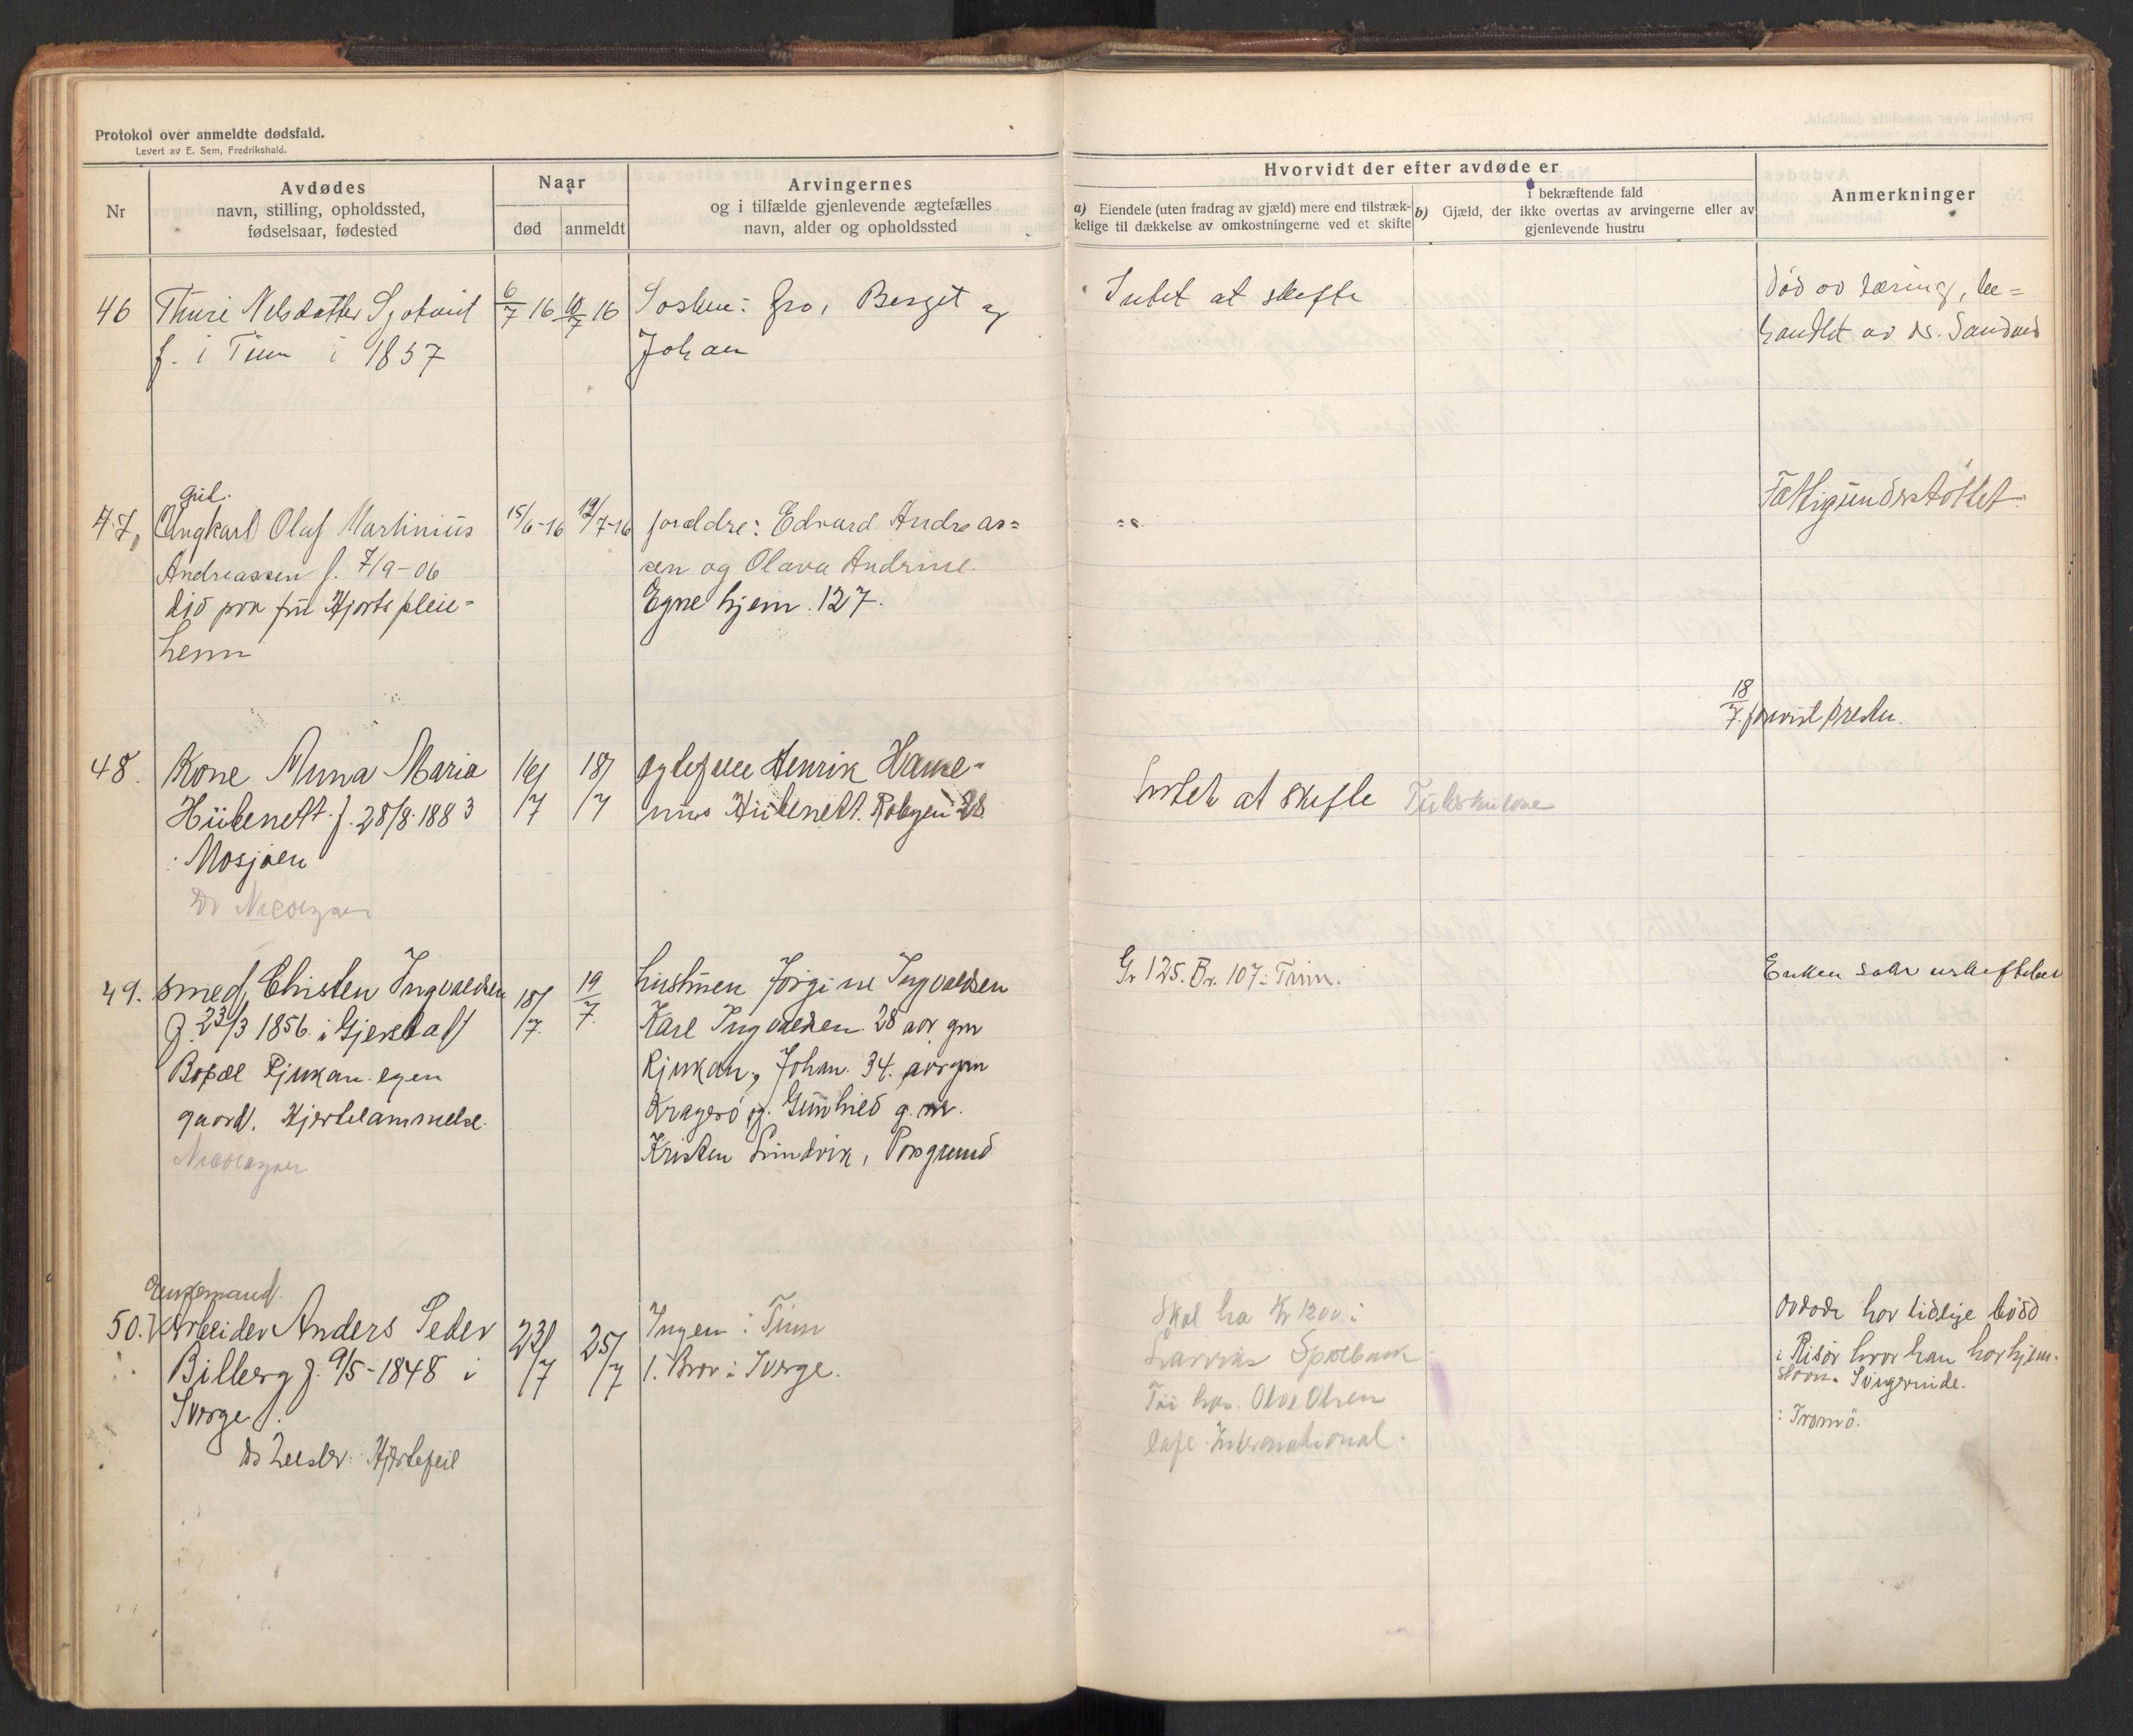 Protokol over anmeldte dødsfald.
Levert av E. Sem, Fredrikshald.
Nr
Avdødes
navn, stilling, opholdssted,
fødselsaar, fødested
Naar
død
anmeldt
Arvingernes
og i tilfælde gjenlevende ægtefælles
navn, alder og opholdssted
Hvorvidt der efter avdøde er
a) Eiendele (uten fradrag av gjæld) mere end tilstræk-
kelige til dækkelse av omkostningerne ved et skifte
i bekræftende fald
b) Gjæld, der ikke overtas av arvingerne eller av
gjenlevende hustru
Anmerkninger
46 Thure Nelsdatter
f. i Tinn i 1857
6/7 16
10/7 16
Søsken: Gro, Berget og
Johan
Intet at skifte
død av tæring, be=
handlet av dr. Sandnes
47,
Gut.
Ungkarl Olaf Martinius
Andreassen f. 7/9-06
did paa fru Hjorts pleie=
hem
15/6-16
12/7-16
forældre: Edvard Andreas=
sen og Olava Andrine.
Egne hjem. 127.
="=
Fattigunderstøttet.
18/7. presten.
48. Kone Anna Maria
Hübenett. f. 28/8. 1883
i Mosjøen
Dr
16/7
18/7
Henrik
Hübenett. 28
Intet at skifte
49. Smed, Christen Ingvaldsen
f. 23/3 1856 i Gjerstad
Bopæl Rjukan. egen
gaard. Hjertelammelse.
18/7.
19/7.
hustruen Jørgine Ingvaldsen
Karl Ingvaldsen 28 aar, gm
Rjukan, Johan. 34. aar gm
Kragerø og. Gunhild g. m.
Kristen Lundvik, Porsgrund
Gr 125. Br. 107 i Tinn.
Enken
Enkemand.
50. Arbeider Anders Peder
Bilberg f. 9/5-1848 i
Sverge.
Dr Hjertefeil
23/7
25/7
Ingen i Tinn
1. Bror i Sverge.
Skal ha Kr 1200 i
Larviks Sparebank
Tøi hos. Olsen
Cafe International.
Avdøde har tidlige bodd
i Risør hvor han har hjem-
stavn. Svigerinde.
i Tromø.